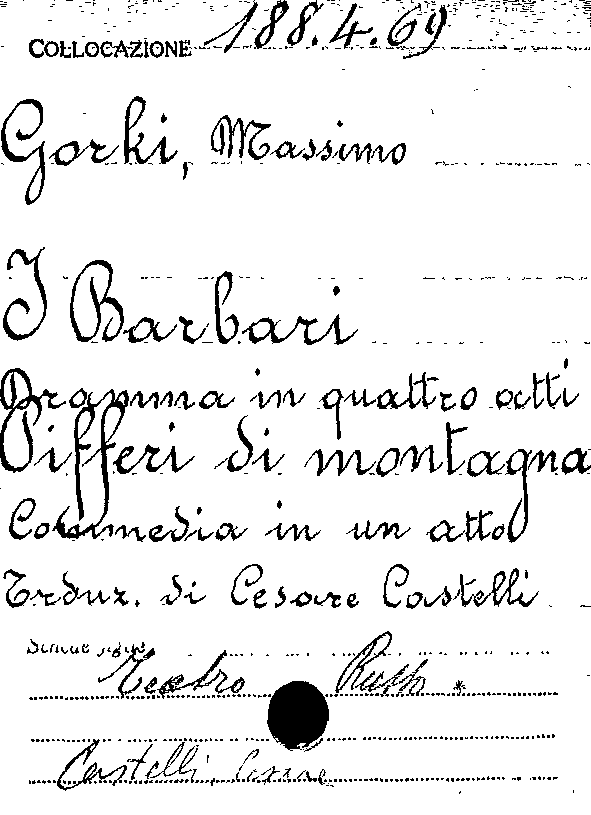 COLLOCAZIONE 188.4.69
Gorki, Massimo
I Barbari
Dramma in quattro atti
Pifferi di montagna
Commedia in un atto
Traduz. di Cesare Castelli
Teatro Russo *
Castelli, Cesare